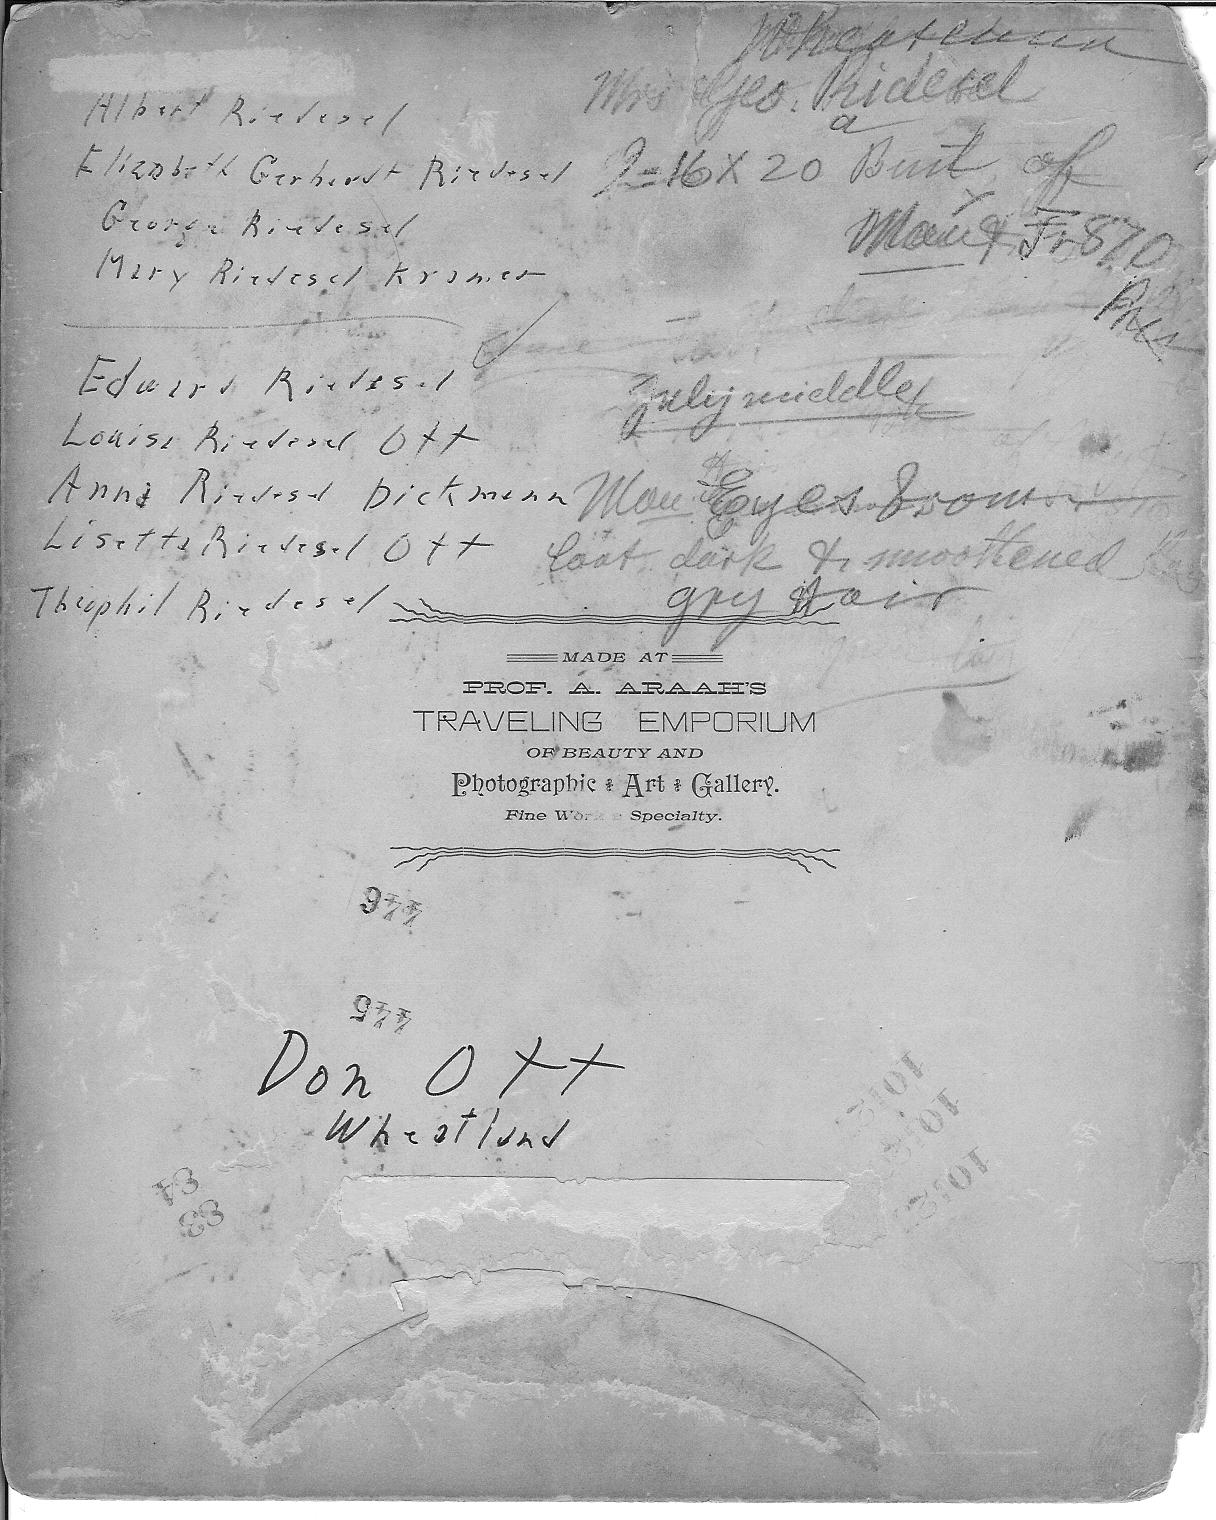 Albert Riedesel
Elizabeth Gerhardt Riedesel
George Riedesel
Mary Riedesel Kramer
Edward Riedesel
Louise Riedesel Ott
Anna Riedesel Dickmann
Lisette Riedesel Ott
Theophil Riedesel
Mrs Geo. Ridesel
2=16 X 20 a Bust of
Man & Fr 870
July middle
Man Eyes brown
Coat dark & smoothened
gry Hair
MADE AT
PROF. A. ARAAH'S
TRAVELING EMPORIUM
OF BEAUTY AND
Photographic Art Gallery.
Fine Work a Specialty.
446
445
Don Ott
Wheatland
84
83